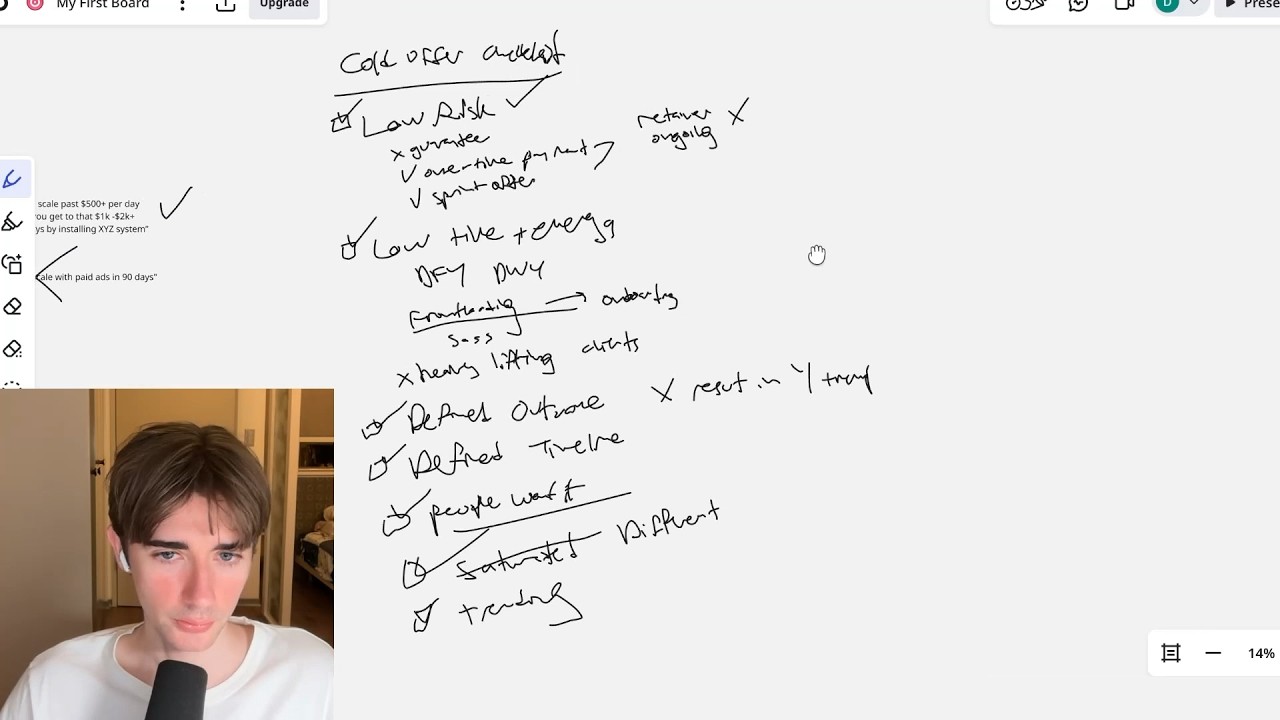 My First Board
Upgrade
D
Prese
Cold offer checklist
Low Risk
x gurantee
over time payment
sprint offer
retainer
ongoing X
scale past $500+ per day
ou get to that $1k -$2k+
ys by installing XYZ system"
cale with paid ads in 90 days"
Low time + energy
DFY DWY
Frontloading → onboarding
saas
x heavy lifting clients
Defined Outcome
X result in Y
Defined Timeline
people want it
Saturated Different
trending
14%